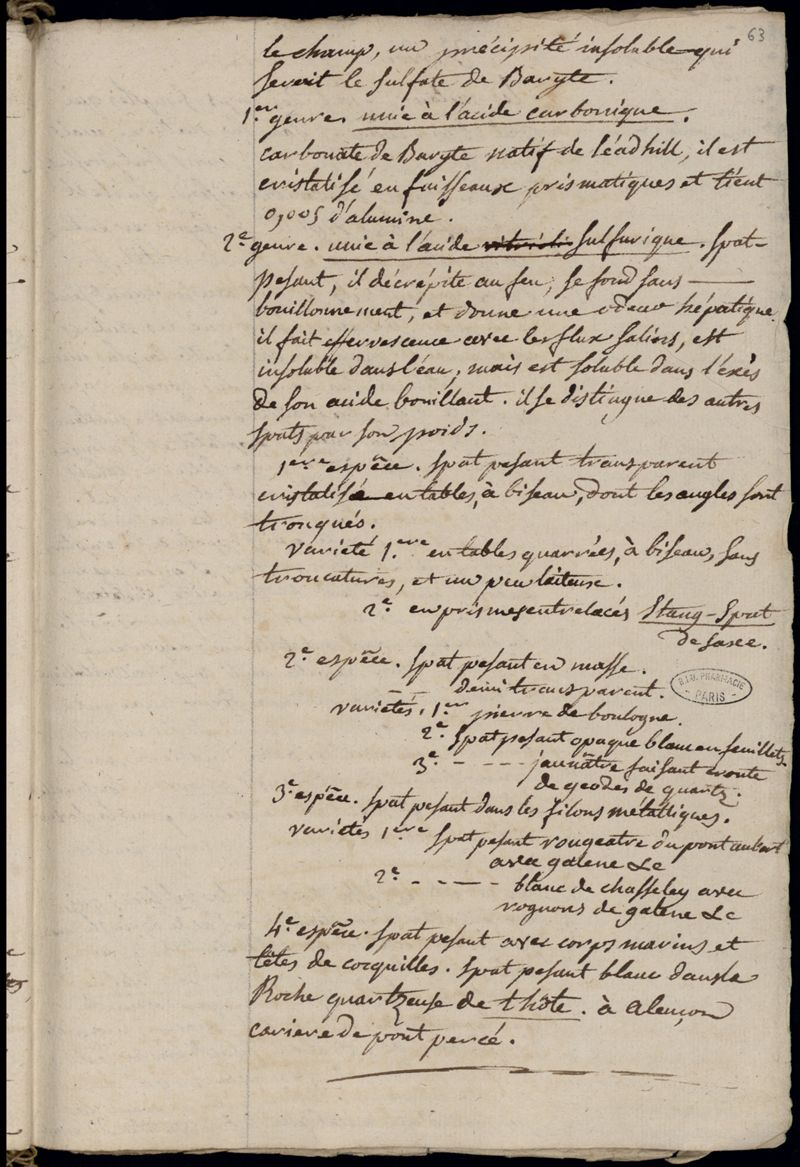 63
le champ, un précipité insoluble qui
seroit le sulfate de Baryte.
1.er genre. unie à l'acide carbonique.
carbonate de Baryte natif de léadhill, il est
cristalisé en faisseaux prismatiques et tient
0,005 d'alumine.
2.e genre. unie à l'acide sulfurique. Spat-
pesant, il décrépite au feu, se fond sans
bouillonnement, et donne une odeur hépatique.
il fait effervescence avec les flux salins, est
insoluble dans l'eau, mais est soluble dans l'éxès
de son acide bouillant. il se distingue des autres
spats par son poids.
1ere espèce. Spat pesant transparent
cristalisé en tables, à biseau, dont les angles sont
tronqués.
varieté 1.ere en tables quarrées, à biseau, sans
troncatures, et un peu laiteuse.
2.e en prismes entrelacés Stang-Spat
de saxe.
2.e espèce. Spat pesant en masse.
demi transparent.
varietés. 1.ere pierre de boulogne.
2.e Spat pesant opaque blanc en feuillets
3.e - - - - jaunâtre faisant croute
de geodes de quartz.
3.e espèce. Spat pesant dans les filons métalliques.
varietés 1ere Spat pesant rougeatre du pont
avec galene &c
2.e - - - - blanc de chasseley avec
rognons de galene &c
4.e espèce. Spat pesant avec corps marins et
têtes de cocquilles. Spat pesant blanc dans la
Roche quartzeuse de thôte. à alençon
cariere de pont percé.
B.I.U. PHARMACIE
PARIS